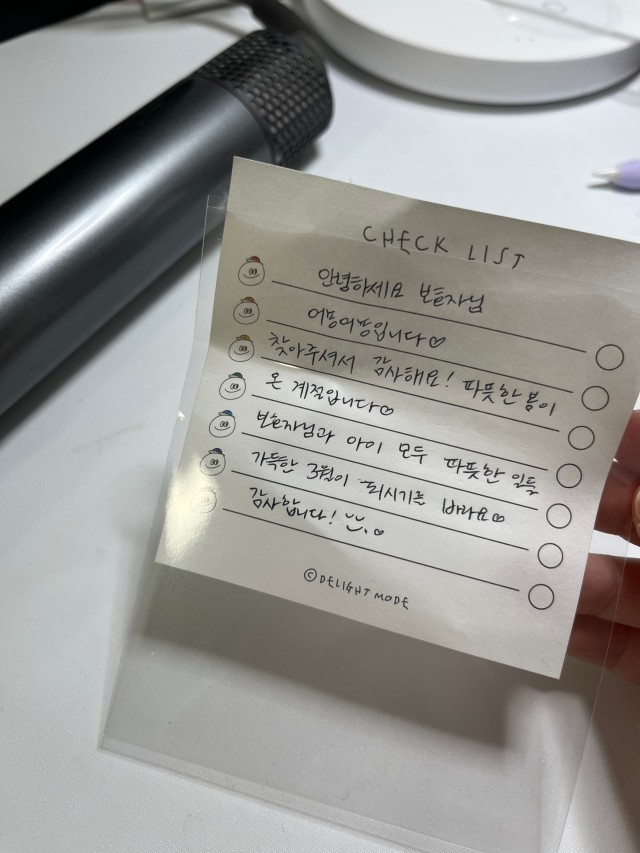 CHECK LIST
안녕하세요 보호자님
어몽어몽입니다♡
찾아주셔서 감사해요! 따뜻한 봄이
온 계절입니다♡
보호자님과 아이 모두 따뜻한 일들
가득한 3월이 되시기를 바라요♡
감사합니다! ♡
©DELIGHT MODE